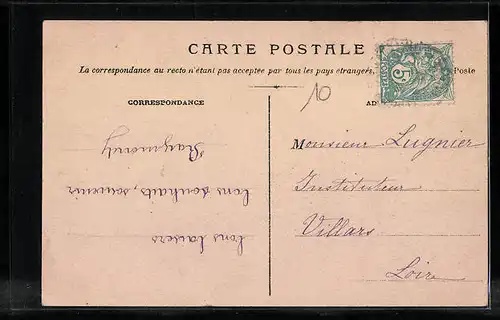 CARTE POSTALE
La correspondance au recto n'étant pas acceptée par tous les pays étrangers, Poste
CORRESPONDANCE
AD
10
5
bons baisers
bons souhaits, souvenir
Raymond
Monsieur Lugnier
Instituteur
Villars
Loire